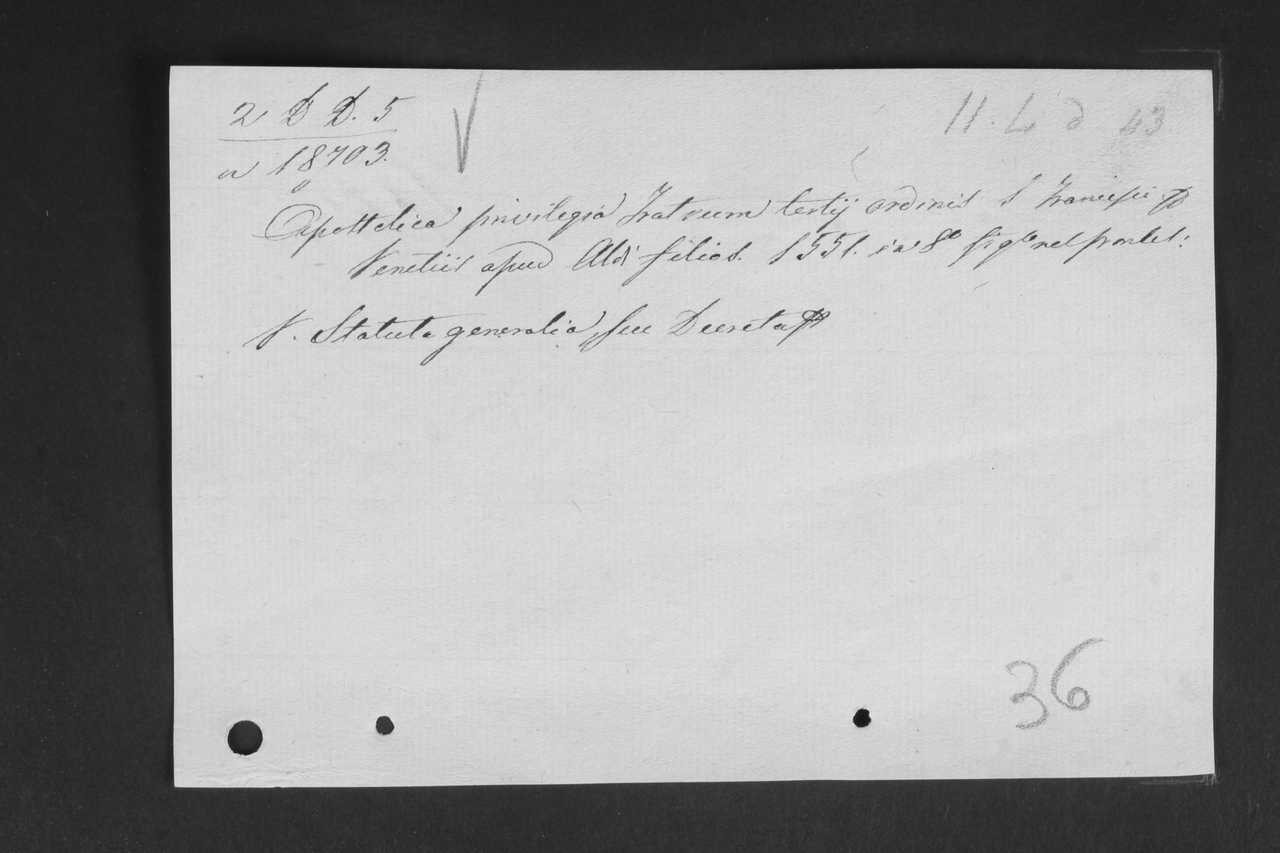 2 D D. 5
n 18703.
11. L d 43
Apostolica privilegia Fratrum tertij ordinis S Francisci
Venetiis apud Aldi filios. 1551. in 8º
V. Statuta generalia, seu Decreta
36